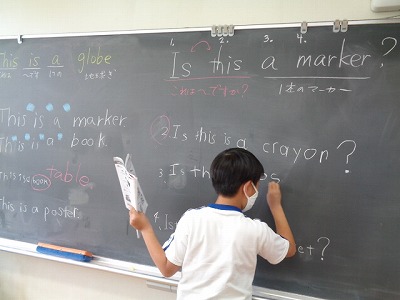 This is a globe
これは 1つの 地球ぎ
This is a marker
This is a book
This is a table
This is a poster.
1. 2. 3. 4.
Is this a marker?
これは〜ですか? 1本のマーカー
2 Is this a crayon?
3. Is th es
4. Is et?